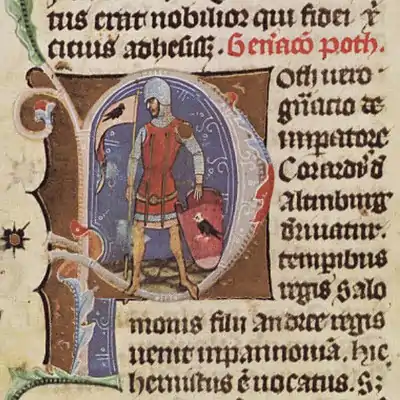 tus erat nobilior qui fidei xp̄i
citius adhesiss;. Geńacō poth.
Poth uero
gn̄acio de
imp̄atore
Corardi d̄
altinburg
d̄riuatur.
temp̄ibus
regis Salo
monis filii andree regis
uenit in pannoniā. hic
hernistus ē uocatus. S;